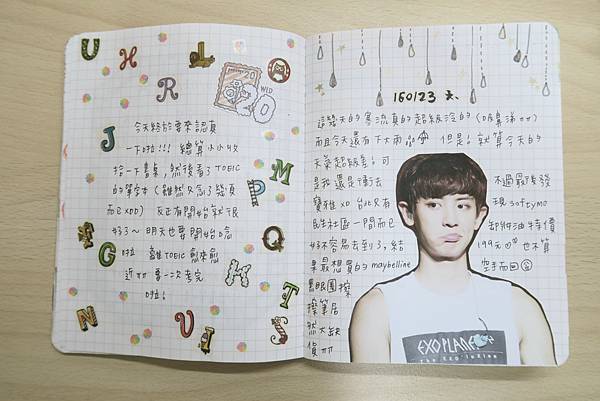 今天終於要來認真
一下啦!!! 總算小小收
拾一下書桌，然後看了TOEIC
的單字本(雖然只念了幾頁
而已XDD) 反正有開始就很
好了~ 明天也要開始唸
啦 離TOEIC愈來愈
近ㅠㅠ 要一次考完
啦!
20
WED
160123
這幾天的寒流真的超級冷的(吸鼻涕ㅠㅠ)
而且今天還有下大雨 但是!就算今天的
天氣超級差!可
是我還是衝去
寶雅XD 台北又有
民生社區一間而已
好不容易去到了,結
果最想買的maybelline
黑眼圈擦
擦筆居
然大缺
貨ㅠㅠ
不過最後發
現softymo
卸妝油特價
199元 也不算
空手而回
EXO PLANET
The EXO'luXion